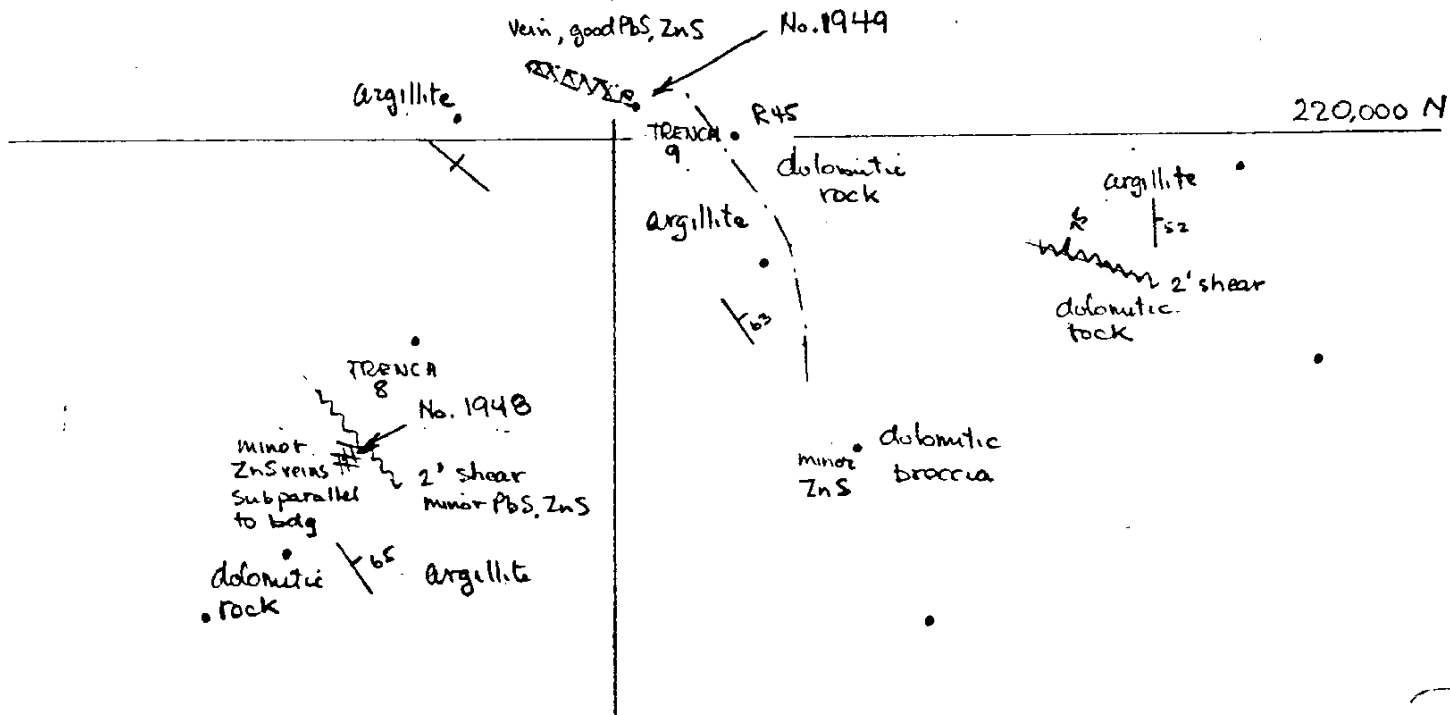 vein, good PbS, ZnS
No. 1949
argillite
TRENCH
9
R45
220,000 N
dolomitic
rock
argillite
argillite
52
2' shear
dolomitic
rock
63
TRENCH
8
No. 1948
minor
ZnS veins
subparallel
to bdg
2' shear
minor PbS, ZnS
minor
ZnS
dolomitic
breccia
65
argillite
dolomitic
rock